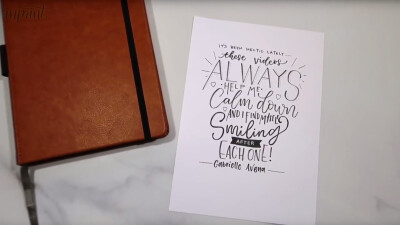 I'VE BEEN HECTIC LATELY
these videos
ALWAYS
HELP ME
Calm down
AND I FIND MYSELF
Smiling
AFTER
EACH ONE!
Gabrielle